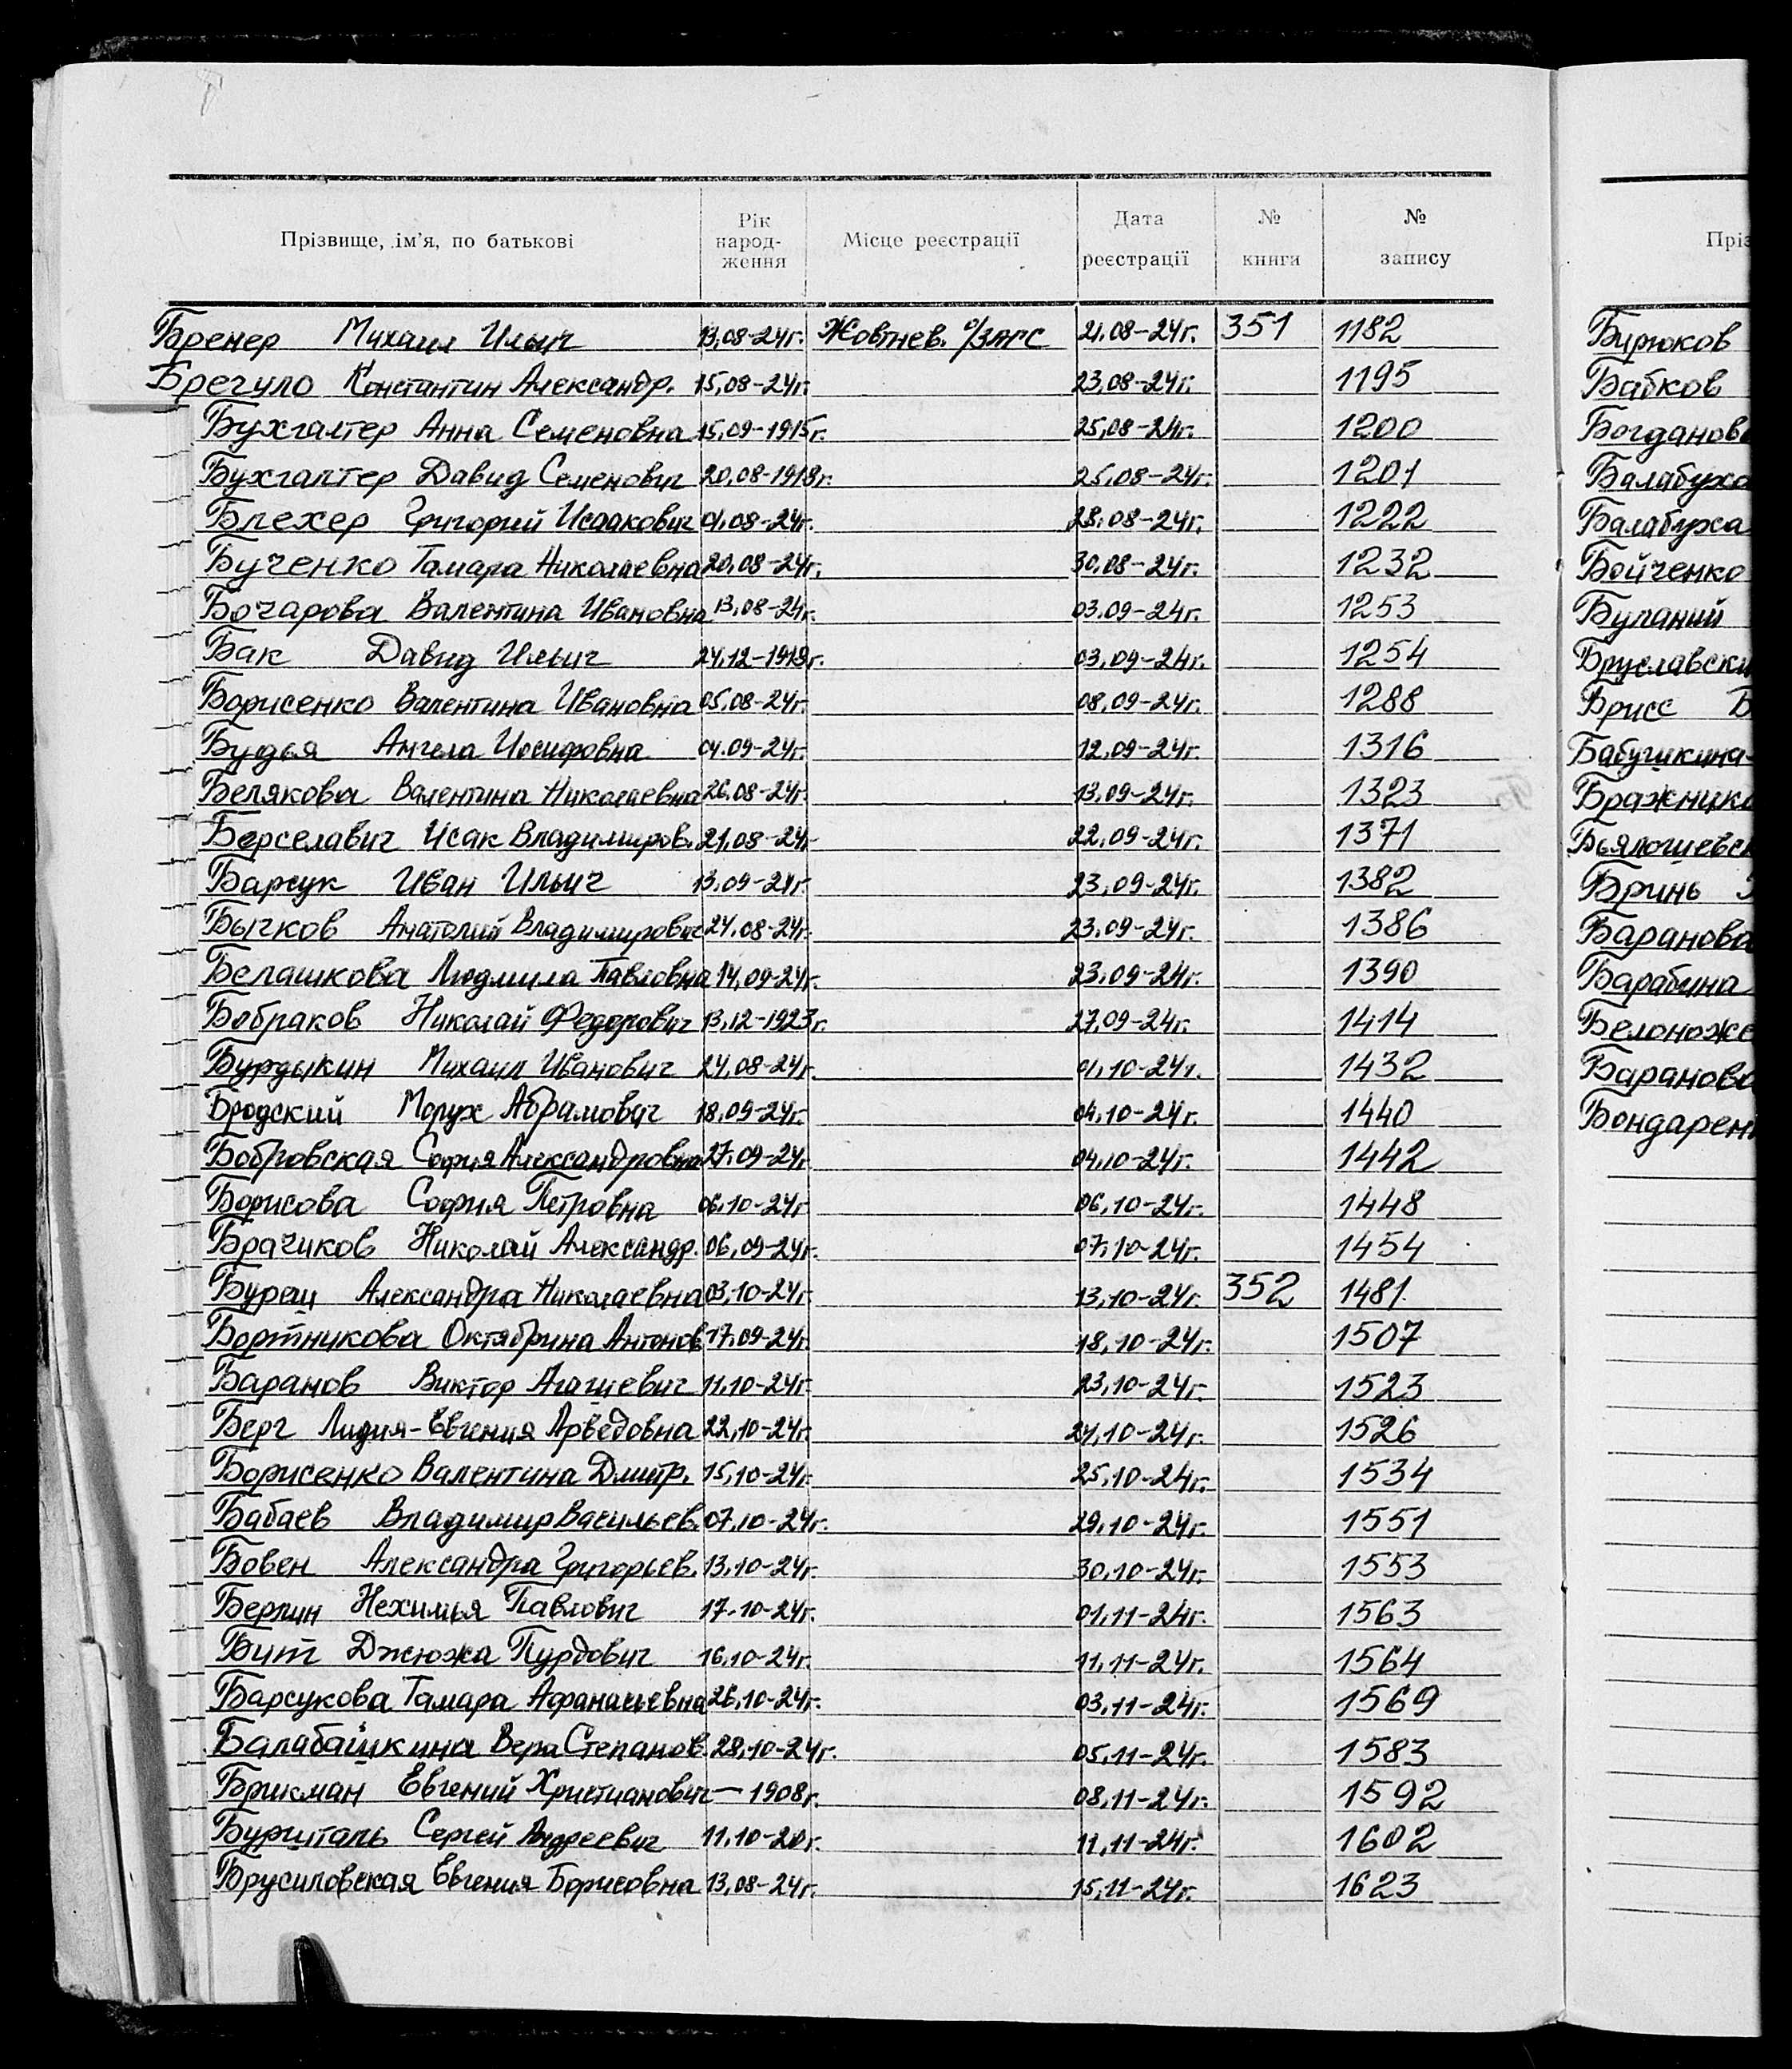 Прізвище, ім'я, по батькові Рік народ- ження Місце реєстрації Дата реєстрації № книги № запису
Бренер Михаил Ильич 13.08-24г. Жовтнев. о/ЗАГС 21.08-24г. 351 1182
Брегуло Константин Александр. 15.08-24г. 23.08-24г. 1195
Бухгалтер Анна Семеновна 15.09-1915г. 25.08-24г. 1200
Бухгалтер Давид Семенович 20.08-1918г. 25.08-24г. 1201
Блехер Григорий Исаакович 01.08-24г. 28.08-24г. 1222
Бученко Тамара Николаевна 20.08-24г. 30.08-24г. 1232
Бочарова Валентина Ивановна 13.08-24г. 03.09-24г. 1253
Бак Давид Ильич 24.12-1919г. 03.09-24г. 1254
Борисенко Валентина Ивановна 05.08-24г. 08.09-24г. 1288
Будья Ангела Иосифовна 04.09-24г. 12.09-24г. 1316
Белякова Валентина Николаевна 26.08-24г. 13.09-24г. 1323
Берселавич Исак Владимиров. 21.08-24г. 22.09-24г. 1371
Барсук Иван Ильич 13.09-24г. 23.09-24г. 1382
Бычков Анатолий Владимирович 24.08-24г. 23.09-24г. 1386
Белашкова Людмила Павловна 14.09-24г. 23.09-24г. 1390
Бобраков Николай Федорович 13.12-1923г. 27.09-24г. 1414
Бурдыкин Михаил Иванович 24.08-24г. 01.10-24г. 1432
Бродский Морух Абрамович 18.09-24г. 04.10-24г. 1440
Бобровская София Александровна 27.09-24г. 04.10-24г. 1442
Борисова София Петровна 06.10-24г. 06.10-24г. 1448
Брачиков Николай Александр. 06.09-24г. 07.10-24г. 1454
Буреш Александра Николаевна 03.10-24г. 13.10-24г. 352 1481
Бортникова Октябрина Антонов. 17.09-24г. 18.10-24г. 1507
Баранов Виктор 11.10-24г. 23.10-24г. 1523
Берг Лидия-Евгения Арведовна 22.10-24г. 24.10-24г. 1526
Борисенко Валентина Дмитр. 15.10-24г. 25.10-24г. 1534
Бабаев Владимир Васильев. 07.10-24г. 29.10-24г. 1551
Бовен Александра Григорьев. 13.10-24г. 30.10-24г. 1553
Берлин Нехимья Павлович 17.10-24г. 01.11-24г. 1563
Бит Джюжа Пурдович 16.10-24г. 11.11-24г. 1564
Барсукова Тамара Афанасьевна 26.10-24г. 03.11-24г. 1569
Балабашкина Вера Степанов. 28.10-24г. 05.11-24г. 1583
Брикман Евгений Христианович — 1908г. 08.11-24г. 1592
Бургиталь Сергей Андреевич 11.10-20г. 11.11-24г. 1602
Брусиловская Евгения Борисовна 13.08-24г. 15.11-24г. 1623
Пріз
Бирюков
Бабков
Богданова
Балабуха
Балабуха
Бойченко
Буланий
Бруславски
Брисс Б
Бабушкина-
Бражнико
Бринь
Баранова
Барабина
Белоноже
Баранова
Бондарен